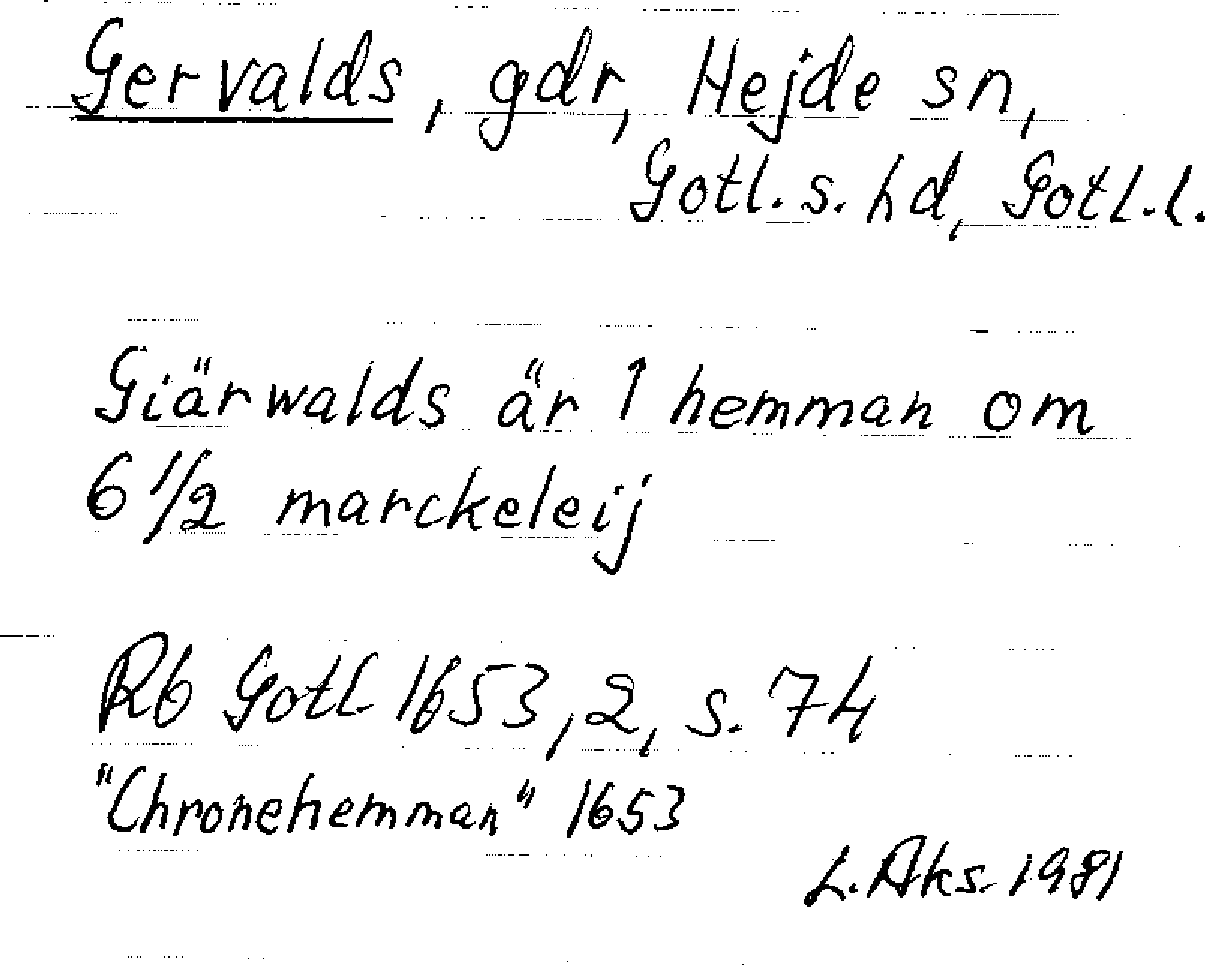 Gervalds, gdr, Hejde sn,
Gotl. s. hd, Gotl. l.
Giärwalds är 1 hemman om
6 1/2 marckeleij
Rb Gotl 1653, 2, s. 74
"Chronehemman" 1653
L. Aks. 1981